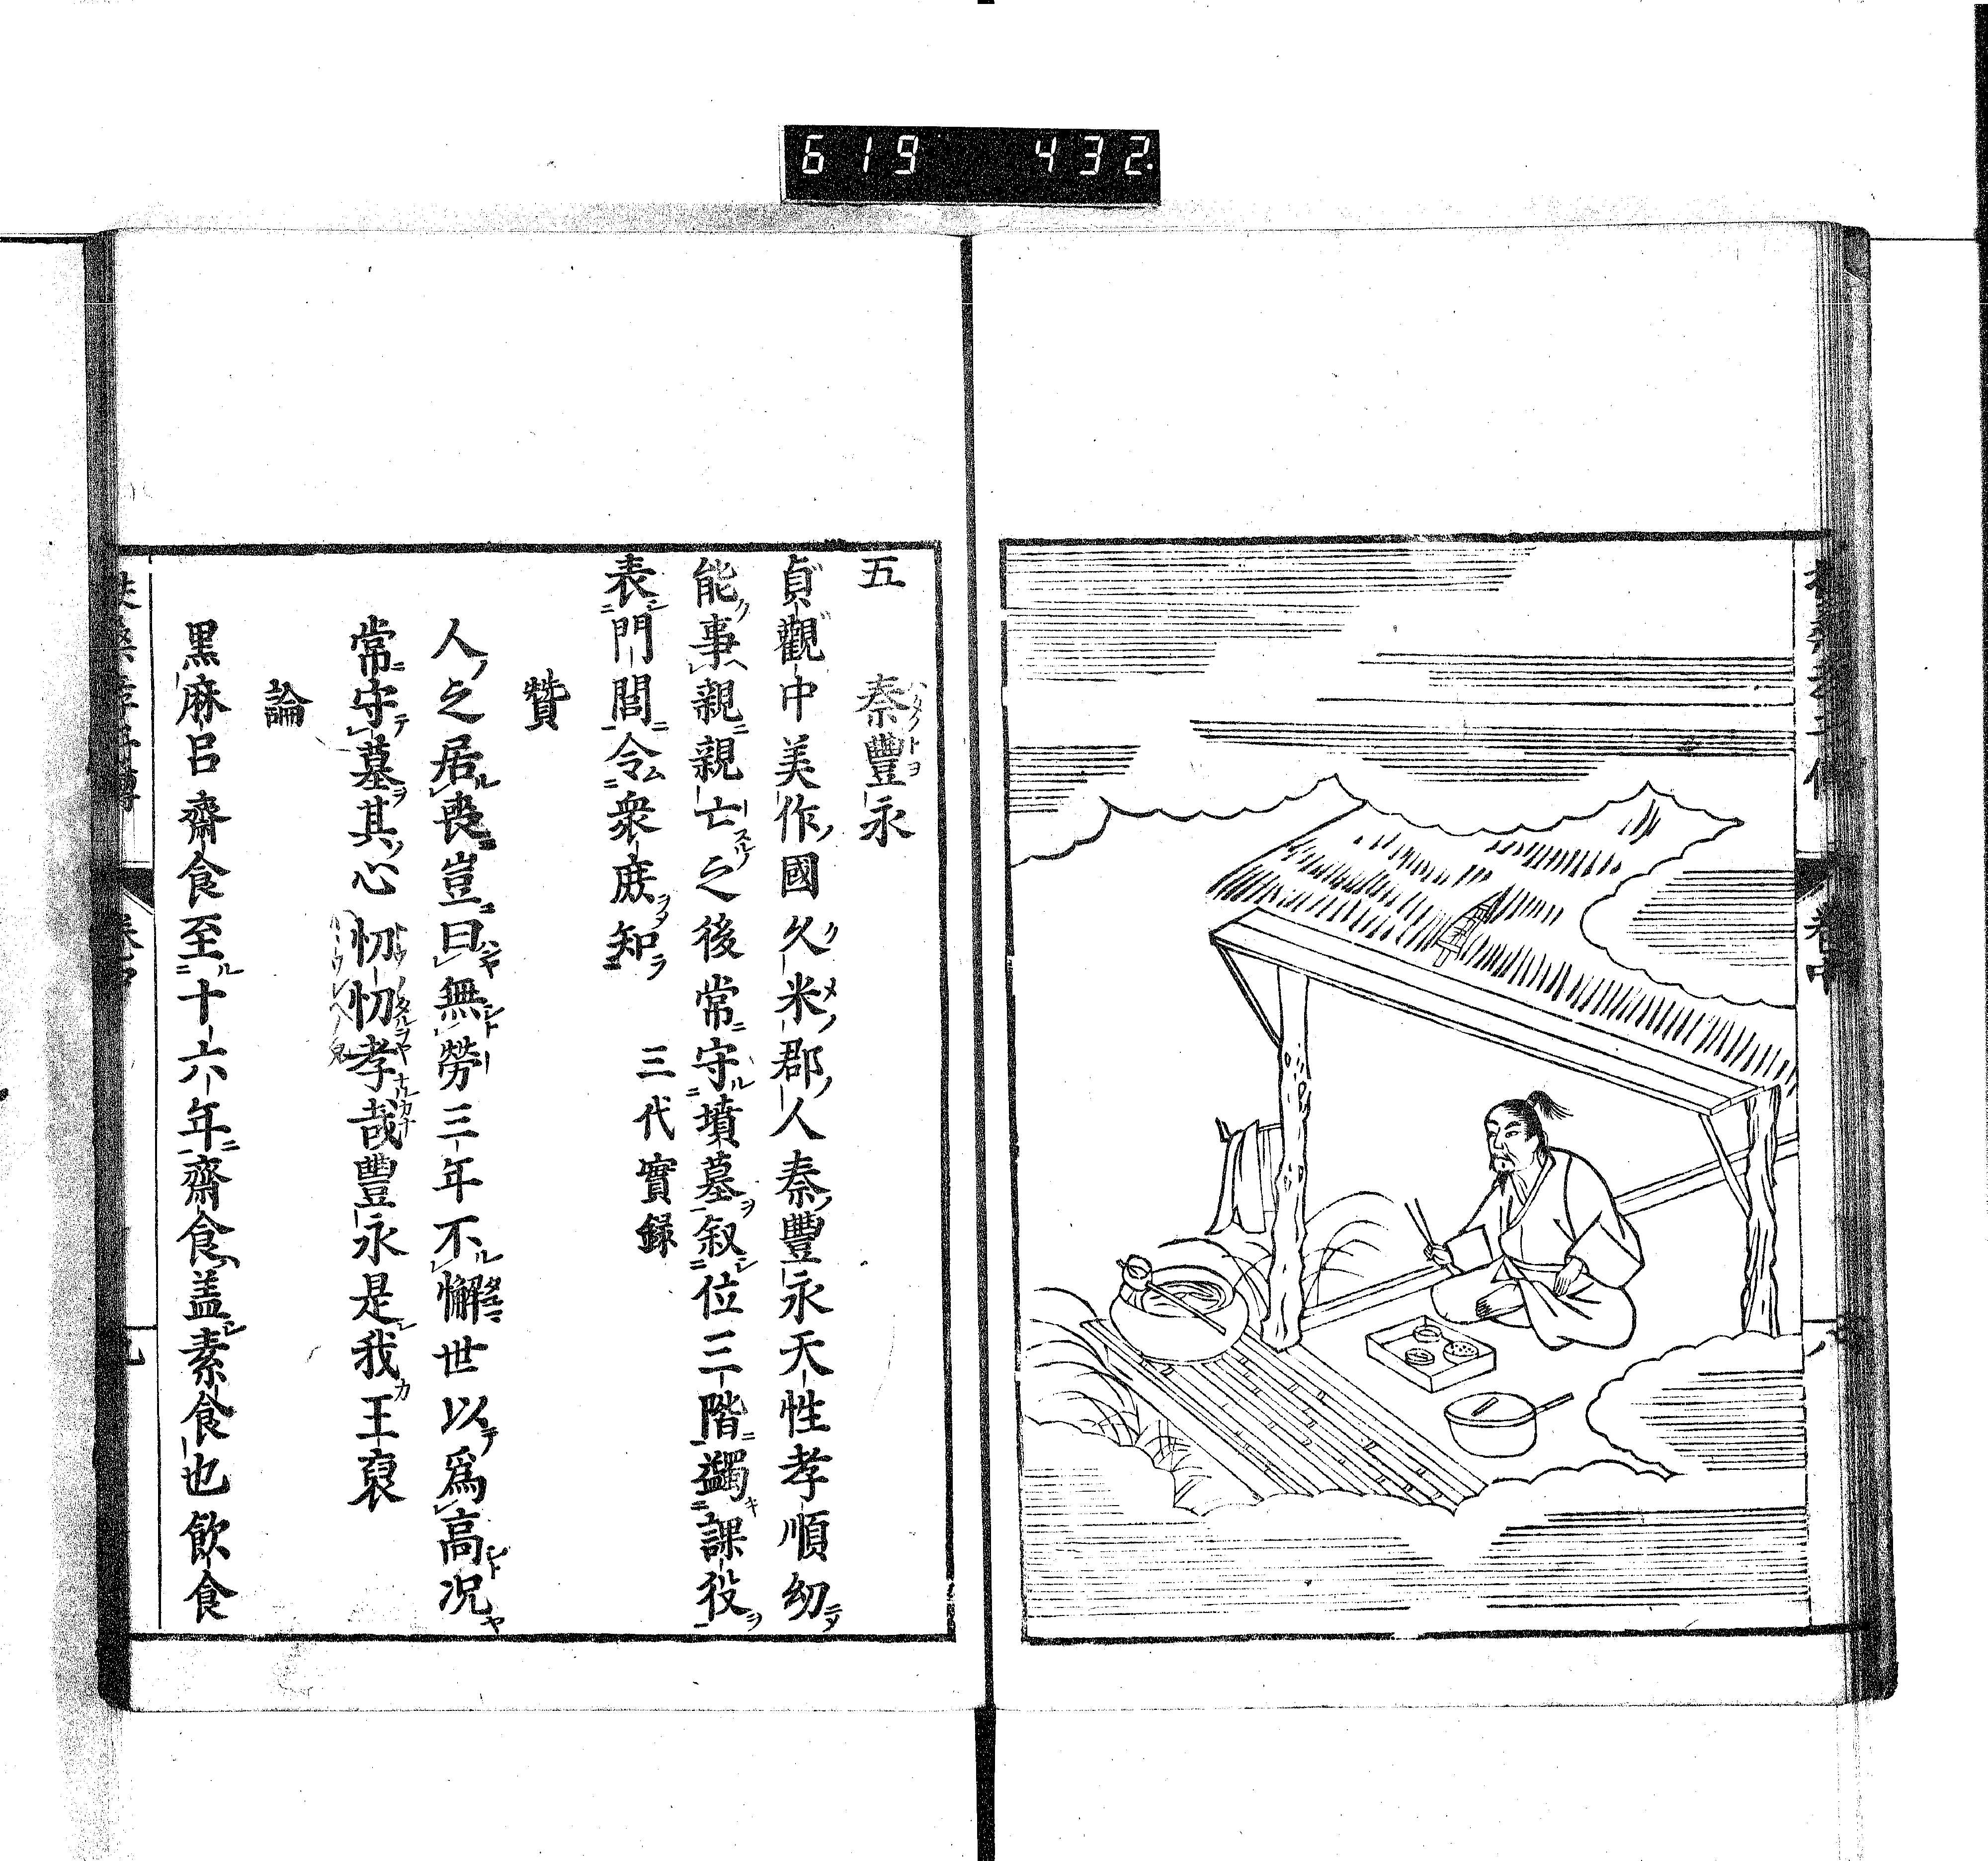 619 432.
卷中
五 秦豐永
貞觀中美作國久米郡人秦豐永天性孝順幼
能事親親亡之後常守墳墓叙位三階蠲課役
表門閭令衆庶知 三代實録
贊
人之居喪豈曰無勞三年不懈世以爲高况
常守墓其心忉忉孝哉豐永是我王裒
論
黒麻呂齋食至十六年齋食盖素食也飲食